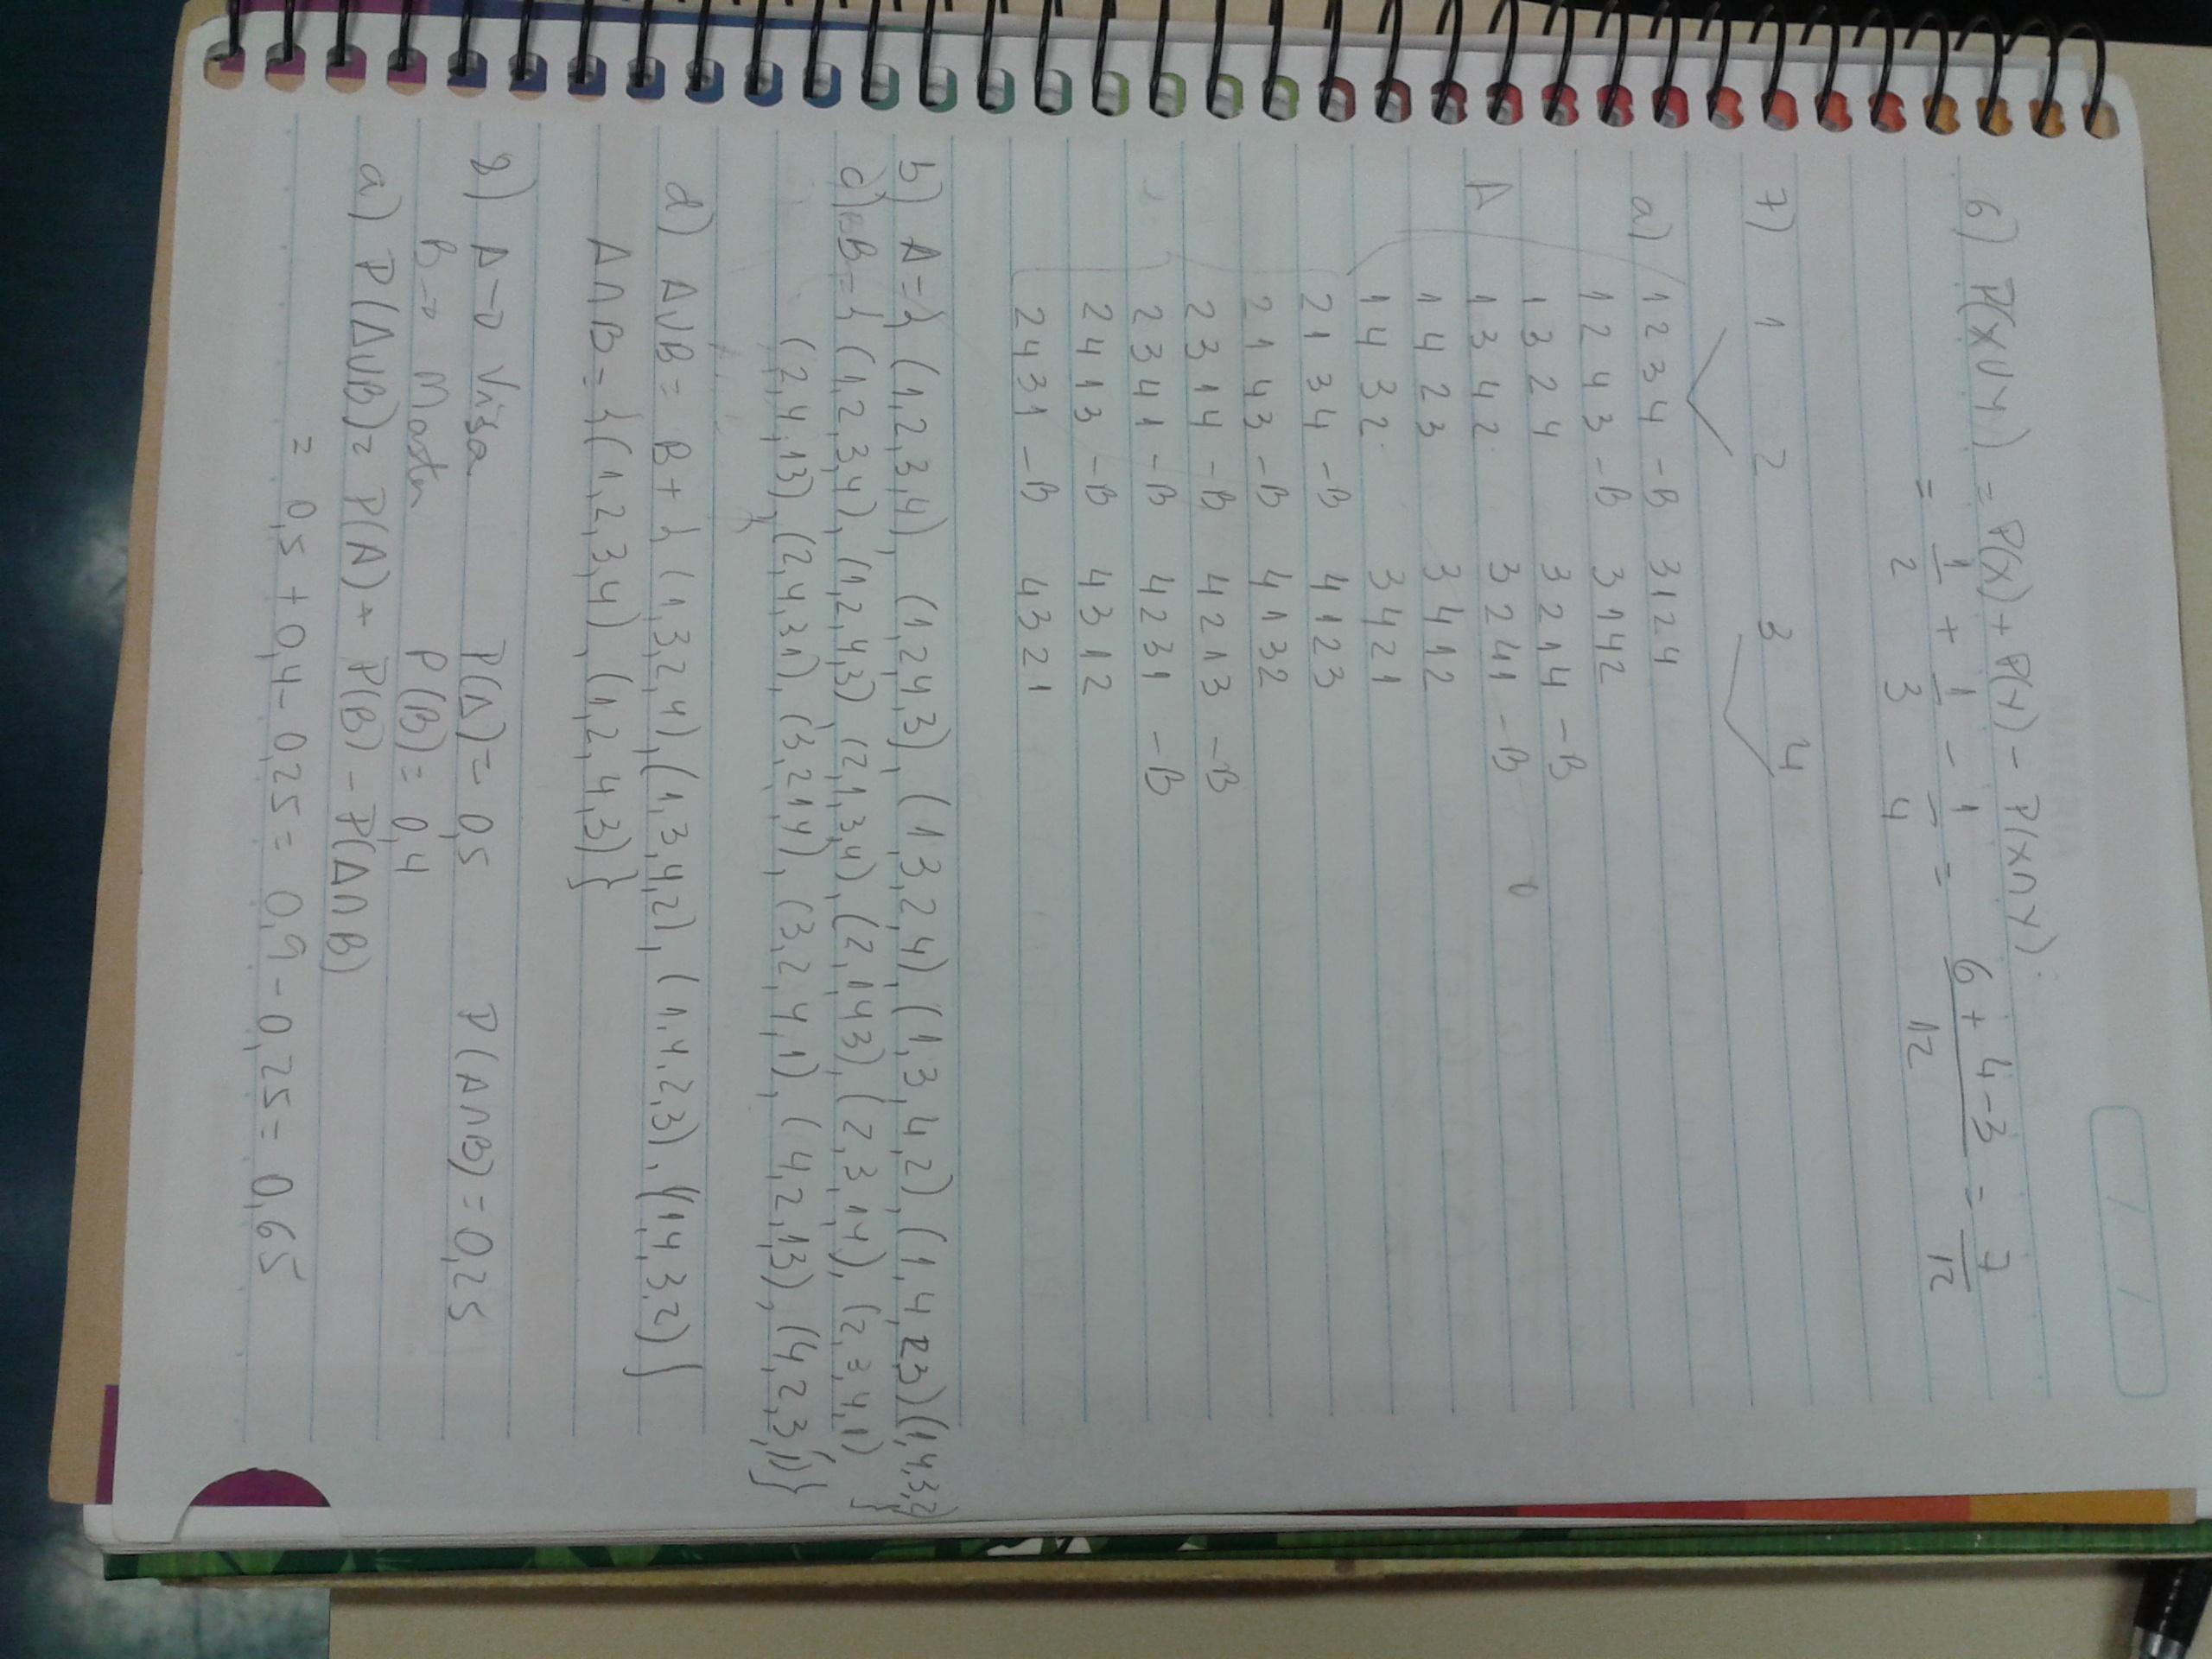 6) P(X∪Y) = P(X) + P(Y) - P(X∩Y):
= 1/2 + 1/3 - 1/4 = 6+4-3/12 = 7/12
7) 1 2 3 4
a) 1234 -B 3124
1243 -B 3142
1324 3214 -B
A 1342 3241 -B
1423 3412
1432 3421
2134 -B 4123
2143 -B 4132
2314 -B 4213 -B
2341 -B 4231 -B
2413 -B 4312
2431 -B 4321
b) A={ (1,2,3,4), (1,2,4,3), (1,3,2,4), (1,3,4,2), (1,4,2,3) (1,4,3,2) }
c) B={ (1,2,3,4), (1,2,4,3) (2,1,3,4), (2,1,4,3), (2,3,1,4), (2,3,4,1)
(2,4,1,3), (2,4,3,1), (3,2,1,4), (3,2,4,1), (4,2,1,3), (4,2,3,1)}
d) A∪B = B + { (1,3,2,4), (1,3,4,2), (1,4,2,3), (1,4,3,2) }
A∩B = { (1,2,3,4), (1,2,4,3) }
8) A → Visa P(A) = 0,5 P(A∩B) = 0,25
B → Master P(B) = 0,4
a) P(A∪B) = P(A) + P(B) - P(A∩B)
= 0,5 + 0,4 - 0,25 = 0,9 - 0,25 = 0,65